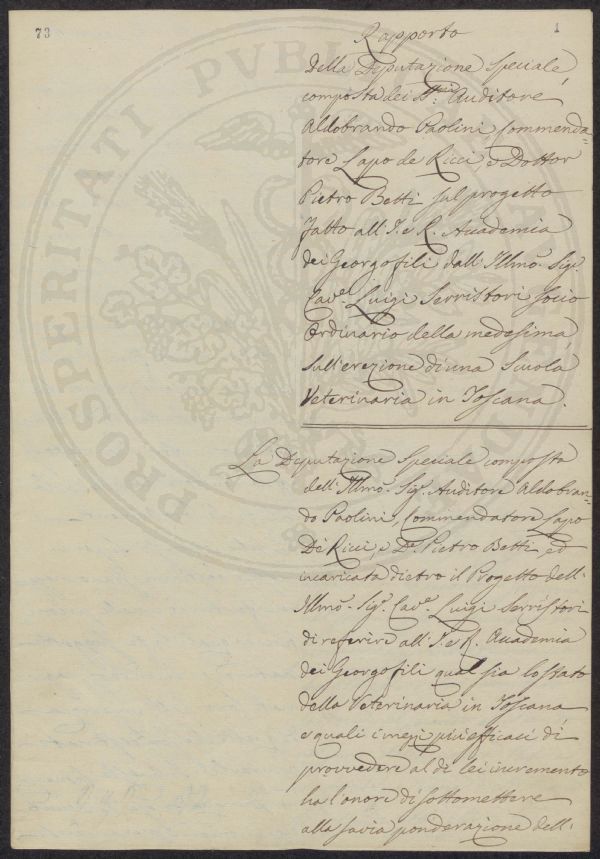 73
1
Rapporto
della Deputazione Speciale,
composta dei Sig.ri Auditore
Aldobrando Paolini, Commenda=
tore Lapo de Ricci, e Dottor
Pietro Betti sul progetto
fatto all'I. e R. Accademia
dei Georgofili dall'Illmo. Sig.
Cav.e Luigi Serristori socio
Ordinario della medesima,
sull'erezione di una Scuola
Veterinaria in Toscana.
La Deputazione Speciale composta
dell'Illmo. Sig. Auditore Aldobran=
do Paolini, Commendatore Lapo
De Ricci, e Dr. Pietro Betti ed
incaricata dietro il Progetto dell'
Illmo. Sig. Cav.e Luigi Serristori
di referire all'I. e R. Accademia
dei Georgofili qual sia lo stato
della Veterinaria in Toscana
e quali i mezzi più efficaci di
provvedere al di lei incremento
ha l'onore di sottomettere
alla savia ponderazione dell'
PROSPERITATI PUBLI